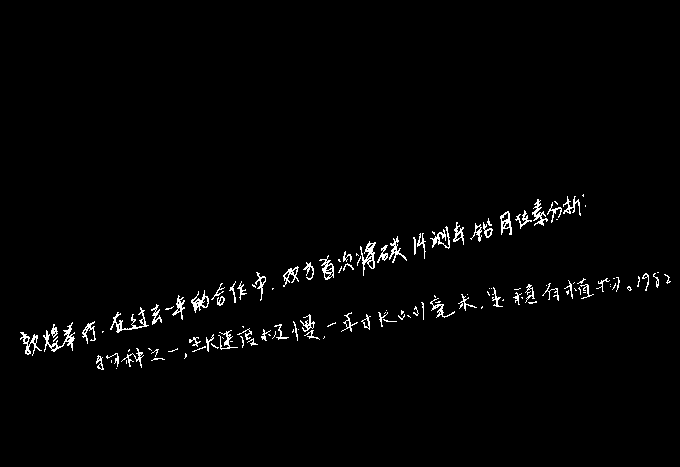 敦煌举行.在过去一年的合作中,双方首次将碳14测年、铅同位素分析.
物种之一,生长速度极慢,一年才长0.1毫米,是稀有植物。1982